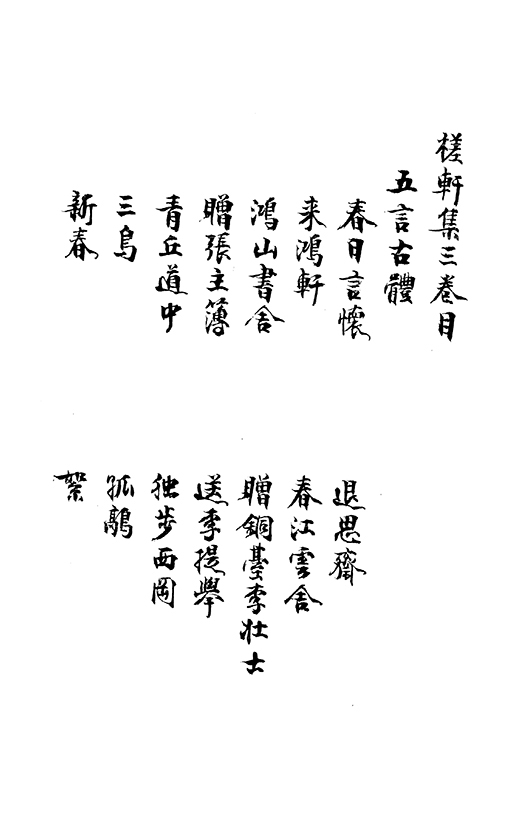 槎軒集三卷目
五言古體
春日言懷　退思齋
来鴻軒　春江雲舍
鴻山書舍　贈銅臺李壯士
贈張主簿　送李提舉
青丘道中　独步西岡
三鳥　孤
新春　絮